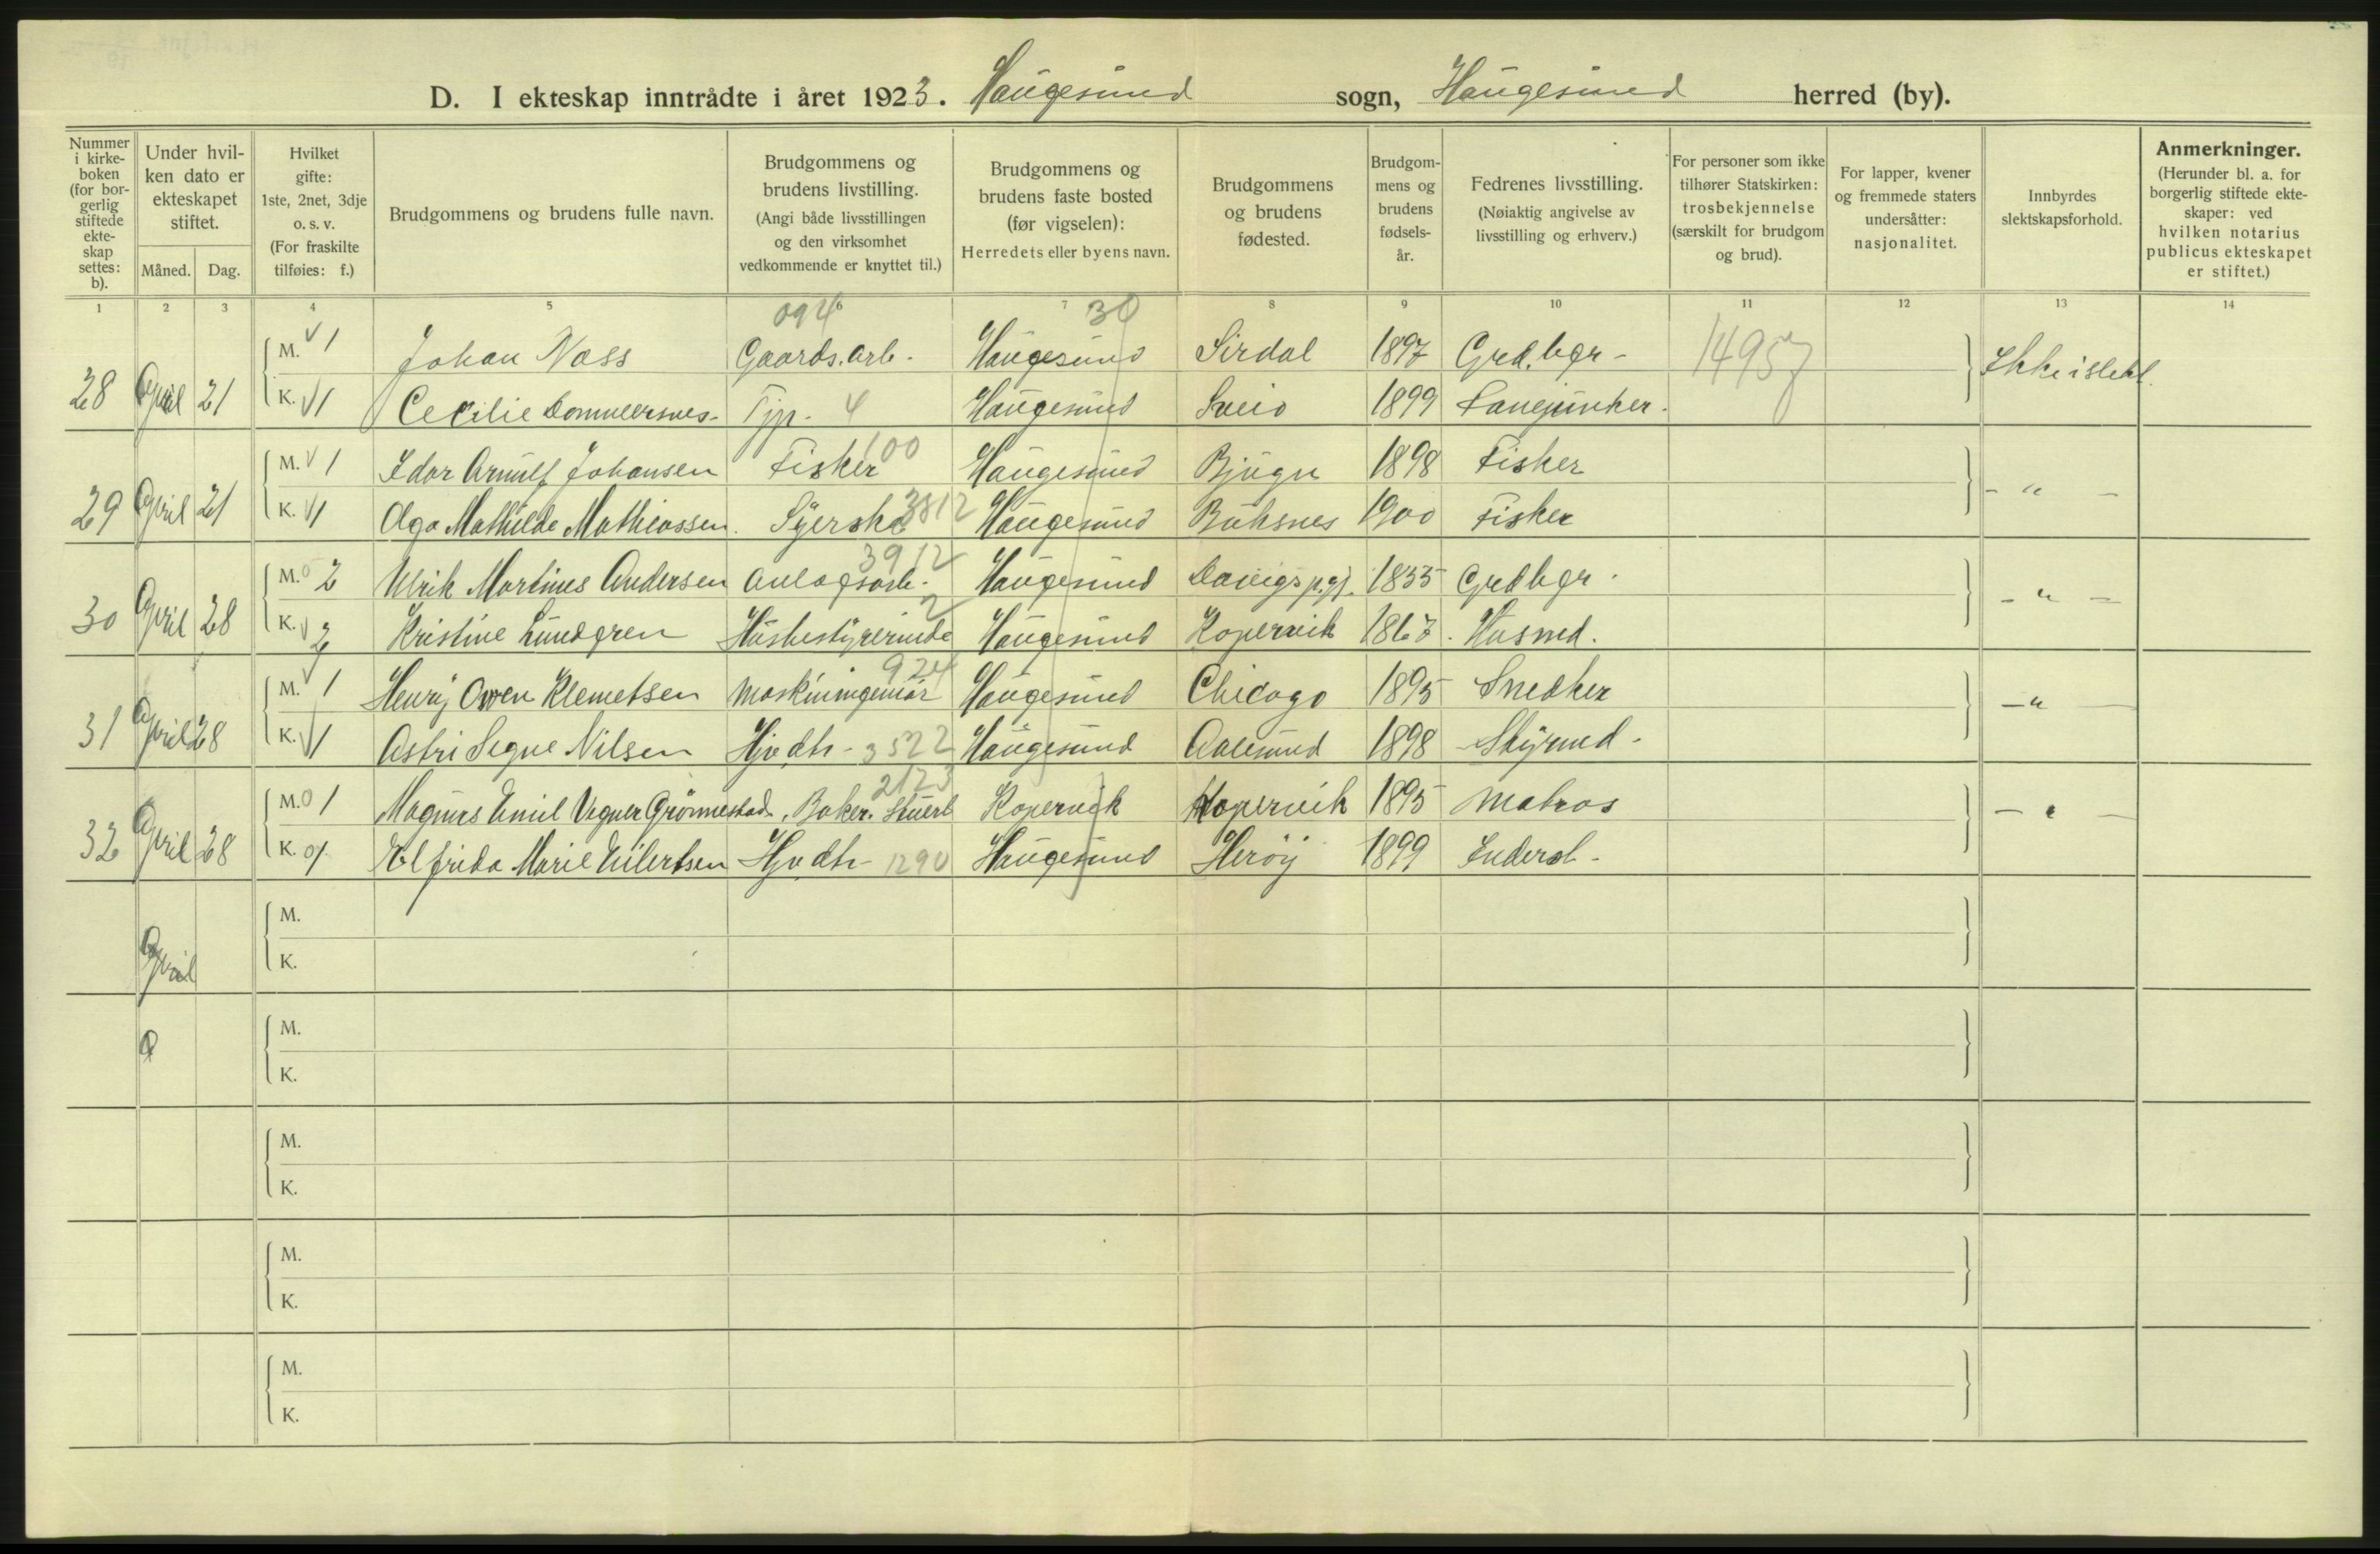 D. I ekteskap inntrådte i året 1923. Haugesund sogn, Haugesund herred (by).
Nummer i kirkeboken (for borgerlig stiftede ekteskap settes: b).
Under hvilken dato er ekteskapet stiftet.
Måned. Dag.
Hvilket gifte: 1ste, 2net, 3dje o. s. v. (For fraskilte tilføies: f.)
Brudgommens og brudens fulle navn.
Brudgommens og brudens livstilling. (Angi både livsstillingen og den virksomhet vedkommende er knyttet til.)
Brudgommens og brudens faste bosted (før vigselen): Herredets eller byens navn.
Brudgommens og brudens fødested.
Brudgommens og brudens fødsels-år.
Fedrenes livsstilling. (Nøiaktig angivelse av livsstilling og erhverv.)
For personer som ikke tilhører Statskirken: trosbekjennelse (særskilt for brudgom og brud).
For lapper, kvener og fremmede staters undersåtter: nasjonalitet.
Innbyrdes slektskapsforhold.
Anmerkninger. (Herunder bl. a. for borgerlig stiftede ekteskaper: ved hvilken notarius publicus ekteskapet er stiftet.)
1 2 3 4 5 6 7 8 9 10 11 12 13 14
094 30
28 April 21 M. 1 Johan Nass Gaards.arb. Haugesund Sirdal 1897 Grd.bgr. 14957 Ikke i slekt.
K. 1 Cecilie Tjp. 4 Haugesund Sveio 1899
29 April 21 M. 1 Idar Arnulf Johansen Fisker 100 Haugesund Bjugn 1898 Fisker - " -
K. 1 Olga Mathilde Mathiassen. Syerske 3812 Haugesund Buksnes 1900 Fisker
3912
30 April 28 M. 2 Ulrik Martinus Andersen Anlægsarb. Haugesund 1855 Grdbgr. - " -
K. 2 Kristine Lundgren Husbestyrerinde 2 Haugesund Kopervik 1867. Husmd.
924
31 April 28 M. 1 Henry Owen Klemetsen Maskiningeniør Haugesund Chicago 1895 Snedker - " -
K. 1 Astri Signe Nilsen Hjv dtr - 3522 Haugesund Aalesund 1898 Styrmd.
2123
32 April 28 M. 0 1 Magnus Emil Vegner Grønnestad. Baker. Stuert Kopervik Kopervik 1895 Matros - " -
K. 0 1 Elfrida Marie Eilertsen Hjv dtr - 1290 Haugesund Herøy 1899
April M.
K.
M.
K.
M.
K.
M.
K.
M.
K.